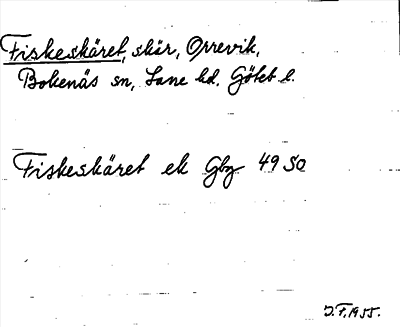 Fiskeskäret, skär, Orrevik,
Bokenäs sn, Lane hd. Göteb l.
Fiskeskäret ek Gbg 49 SO
J.F. 1955.